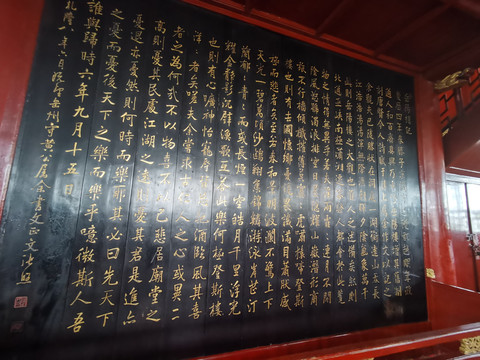 岳陽樓記
慶曆四年春滕子京謫守巴陵郡越明年政
通人和百廢具興乃重修岳陽樓增其舊制
余觀夫巴陵勝狀在洞庭一湖銜遠山吞長
江浩浩湯湯橫無際涯朝暉夕陰氣象萬千
此則岳陽樓之大觀也前人之述備矣然則
北通巫峽南極瀟湘遷客騷人多會於此覽
物之情得無異乎若夫霪雨霏霏連月不開
陰風怒號濁浪排空日星隱耀山嶽潛形商
旅不行檣傾楫摧薄暮冥冥虎嘯猿啼登斯
樓也則有去國懷鄉憂讒畏譏滿目蕭然感
極而悲者矣至若春和景明波瀾不驚上下
天光一碧萬頃沙鷗翔集錦鱗游泳岸芷汀
蘭郁郁青青而或長煙一空皓月千里浮光
耀金靜影沉璧漁歌互答此樂何極登斯樓
也則有心曠神怡寵辱皆忘把酒臨風其喜
洋洋者矣嗟夫余嘗求古仁人之心或異二
者之為何哉不以物喜不以己悲居廟堂之
高則憂其民處江湖之遠則憂其君是進亦
憂退亦憂然則何時而樂耶其必曰先天下
之憂而憂後天下之樂而樂乎噫微斯人吾
誰與歸時六年九月十五日
乾隆八年六月既望岳州守黃公屬余書文正文張照